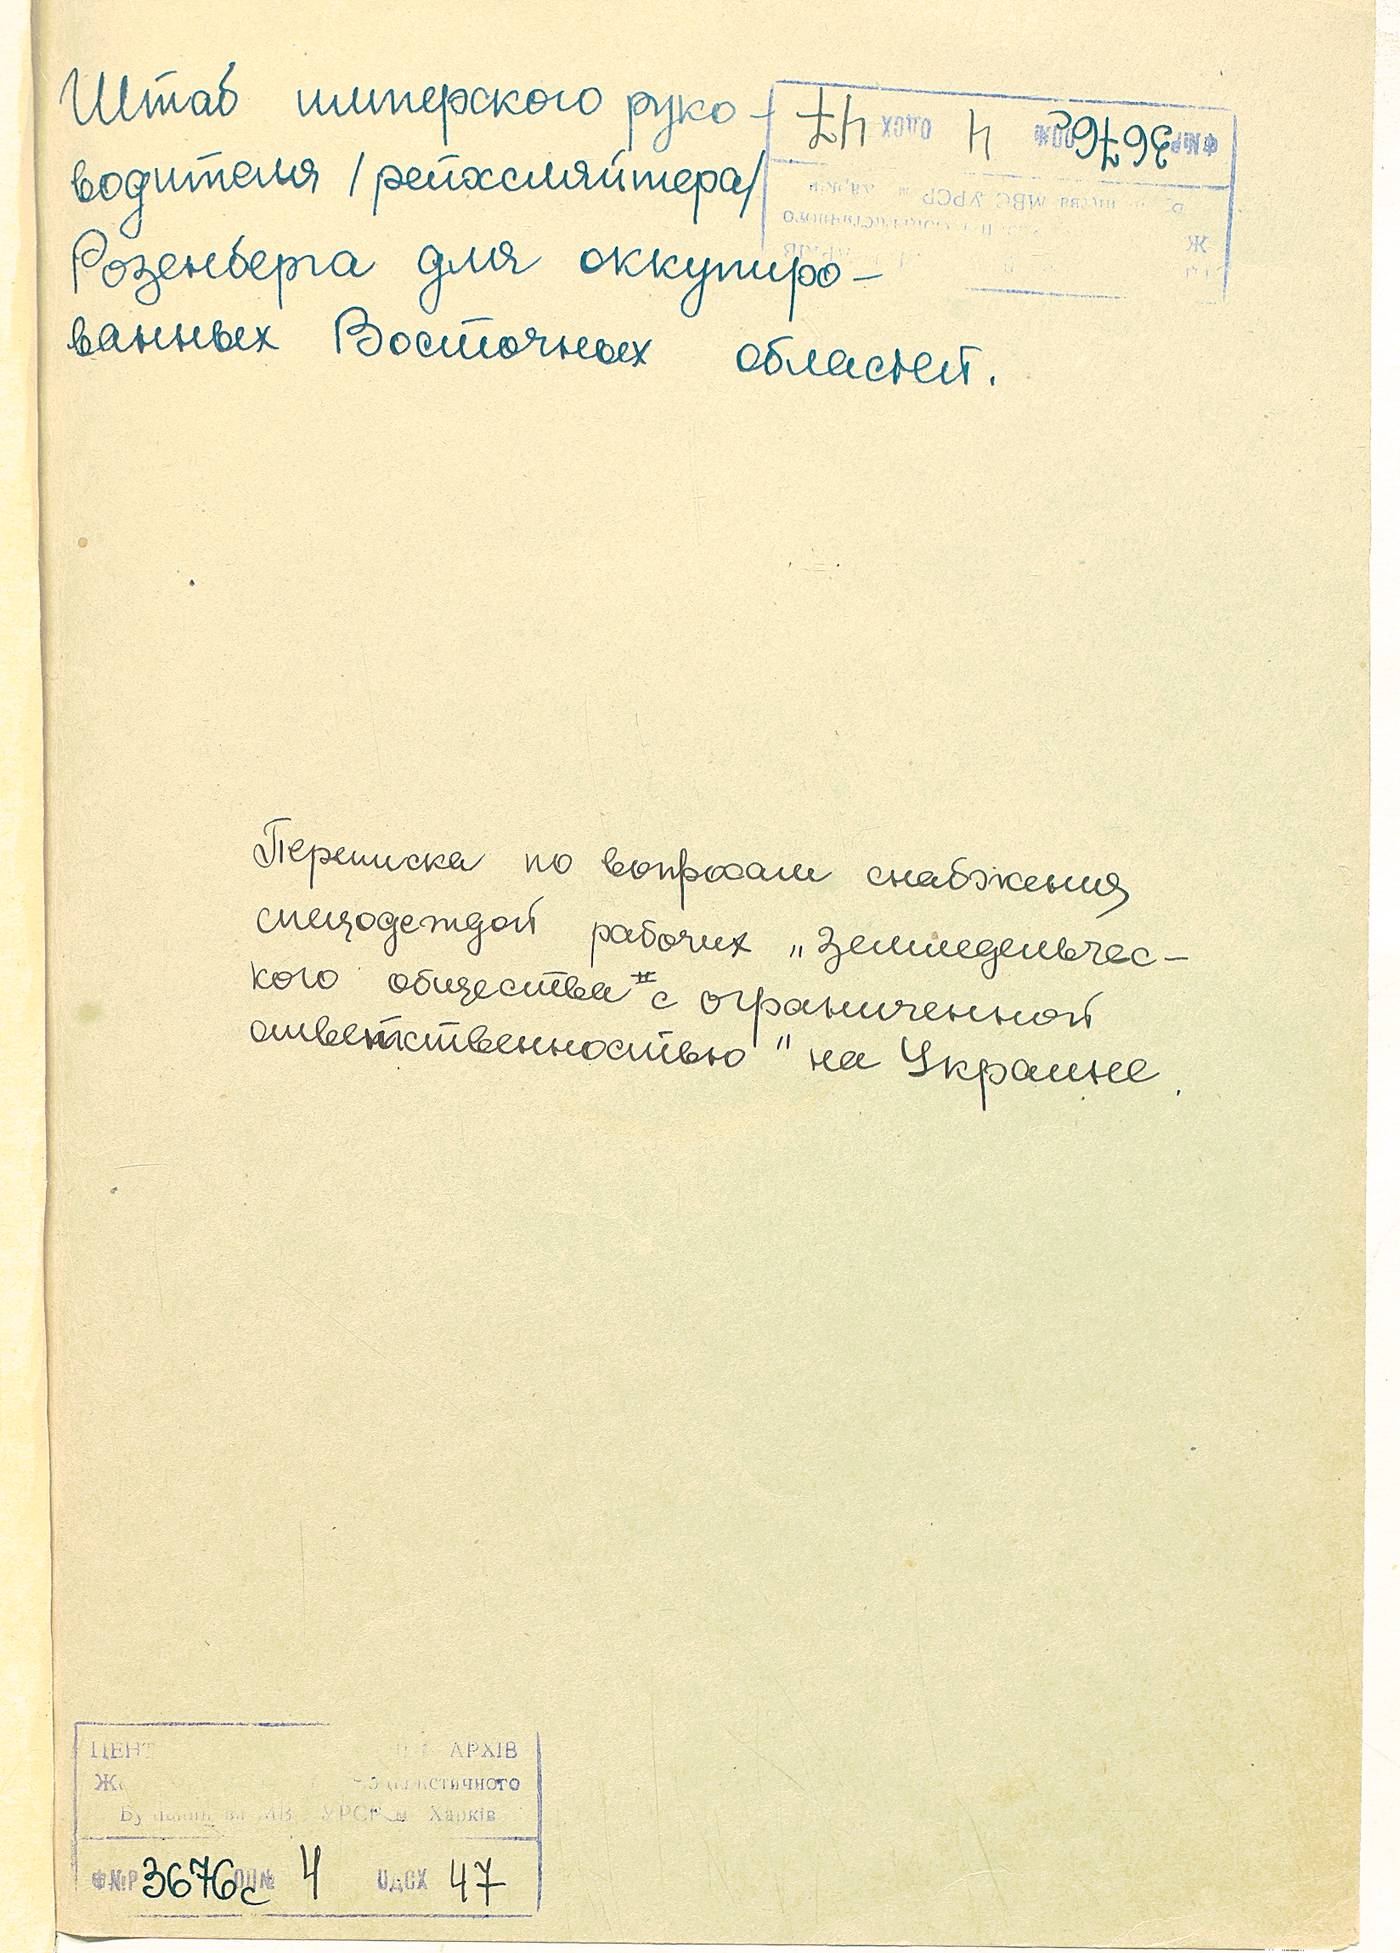 Штаб имперского руко-
водителя /рейхсляйтера/
Розенберга для оккупиро-
ванных Восточных областей.
Ф№Р 3676с ОП№ 4 ОДСХ 47
Переписка по вопросам снабжения
спецодеждой рабочих „Земледельчес-
кого общества" с ограниченной
ответственностью" на Украине.
АРХІВ
Харків
Ф№Р 3676с ОП№ 4 ОДСХ 47